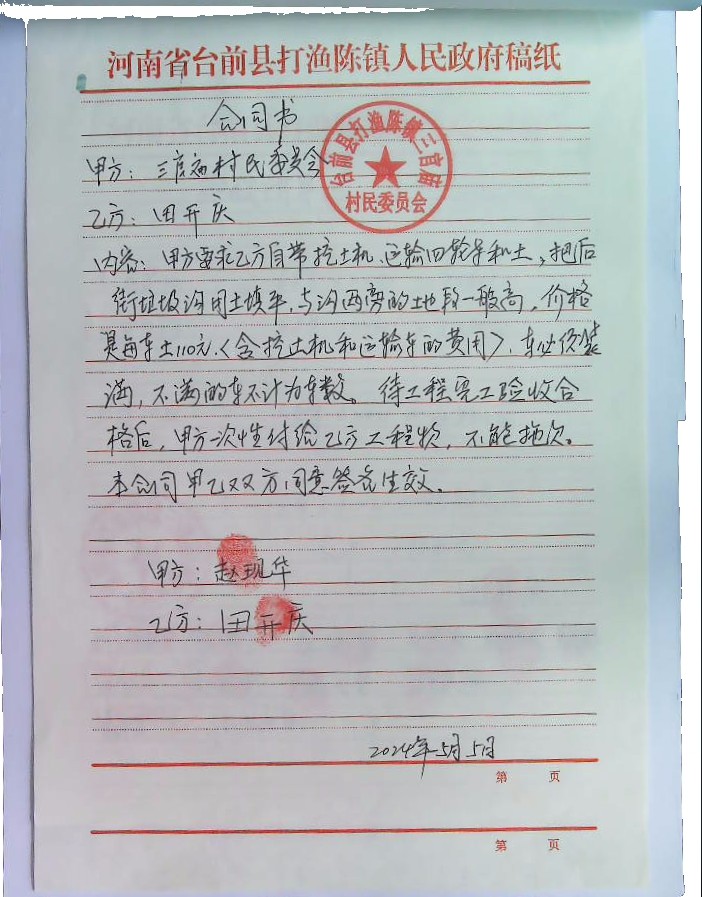 河南省台前县打渔陈镇人民政府稿纸
合同书
台前县打渔陈镇三官庙
村民委员会
甲方：三官庙村民委员会
乙方：田开庆
内容：甲方要求乙方自带挖土机、运输四轮车和土，把后
街垃圾沟用土填平，与沟两旁的地段一般高，价格
是每车土110元，〈含挖土机和运输车的费用〉，车必须装
满，不满的车不计为车数。待工程完工验收合
格后，甲方一次性付给乙方工程款，不能拖欠。
本合同甲乙双方同意签名生效。
甲方：赵现华
乙方：田开庆
2024年5月5日
第 页
第 页